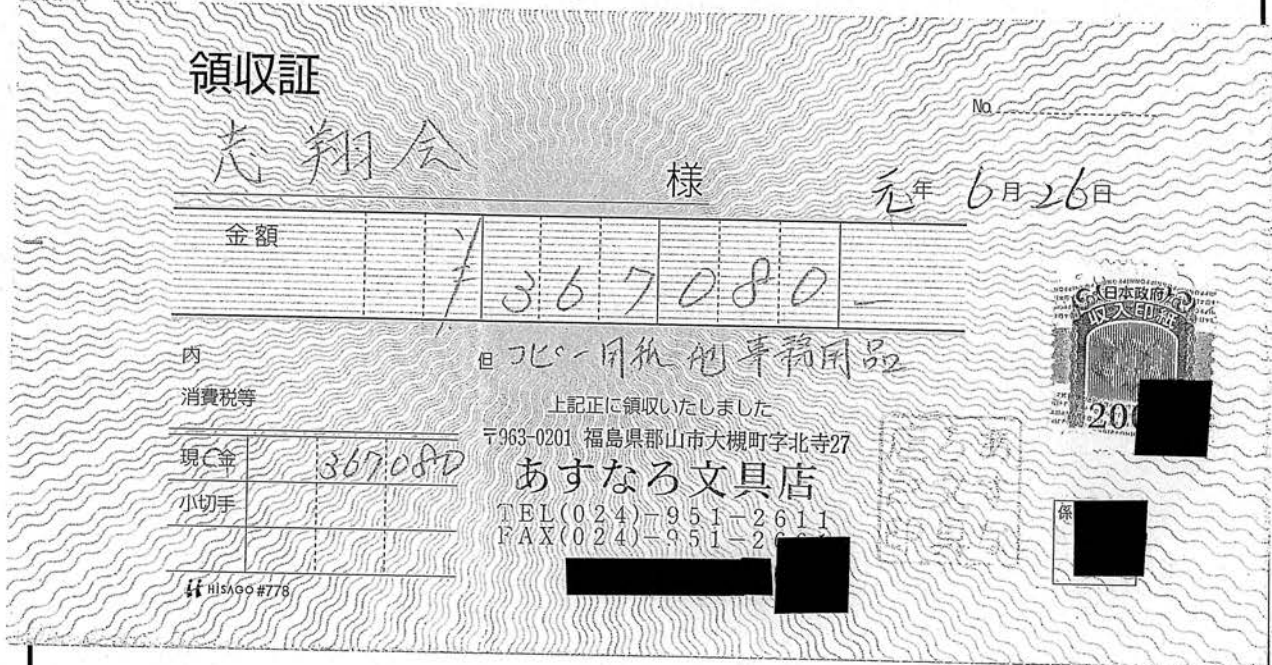 領収証
No.
志翔会 様
元年 6月26日
金額 ¥367080-
内
但 コピー用紙 他 事務用品
消費税等
上記正に領収いたしました
現金 367080
〒963-0201 福島県郡山市大槻町字北寺27
あすなろ文具店
小切手
TEL(024)-951-2611
FAX(024)-951-26
HISAGO #778
日本政府
収入印紙
200
係